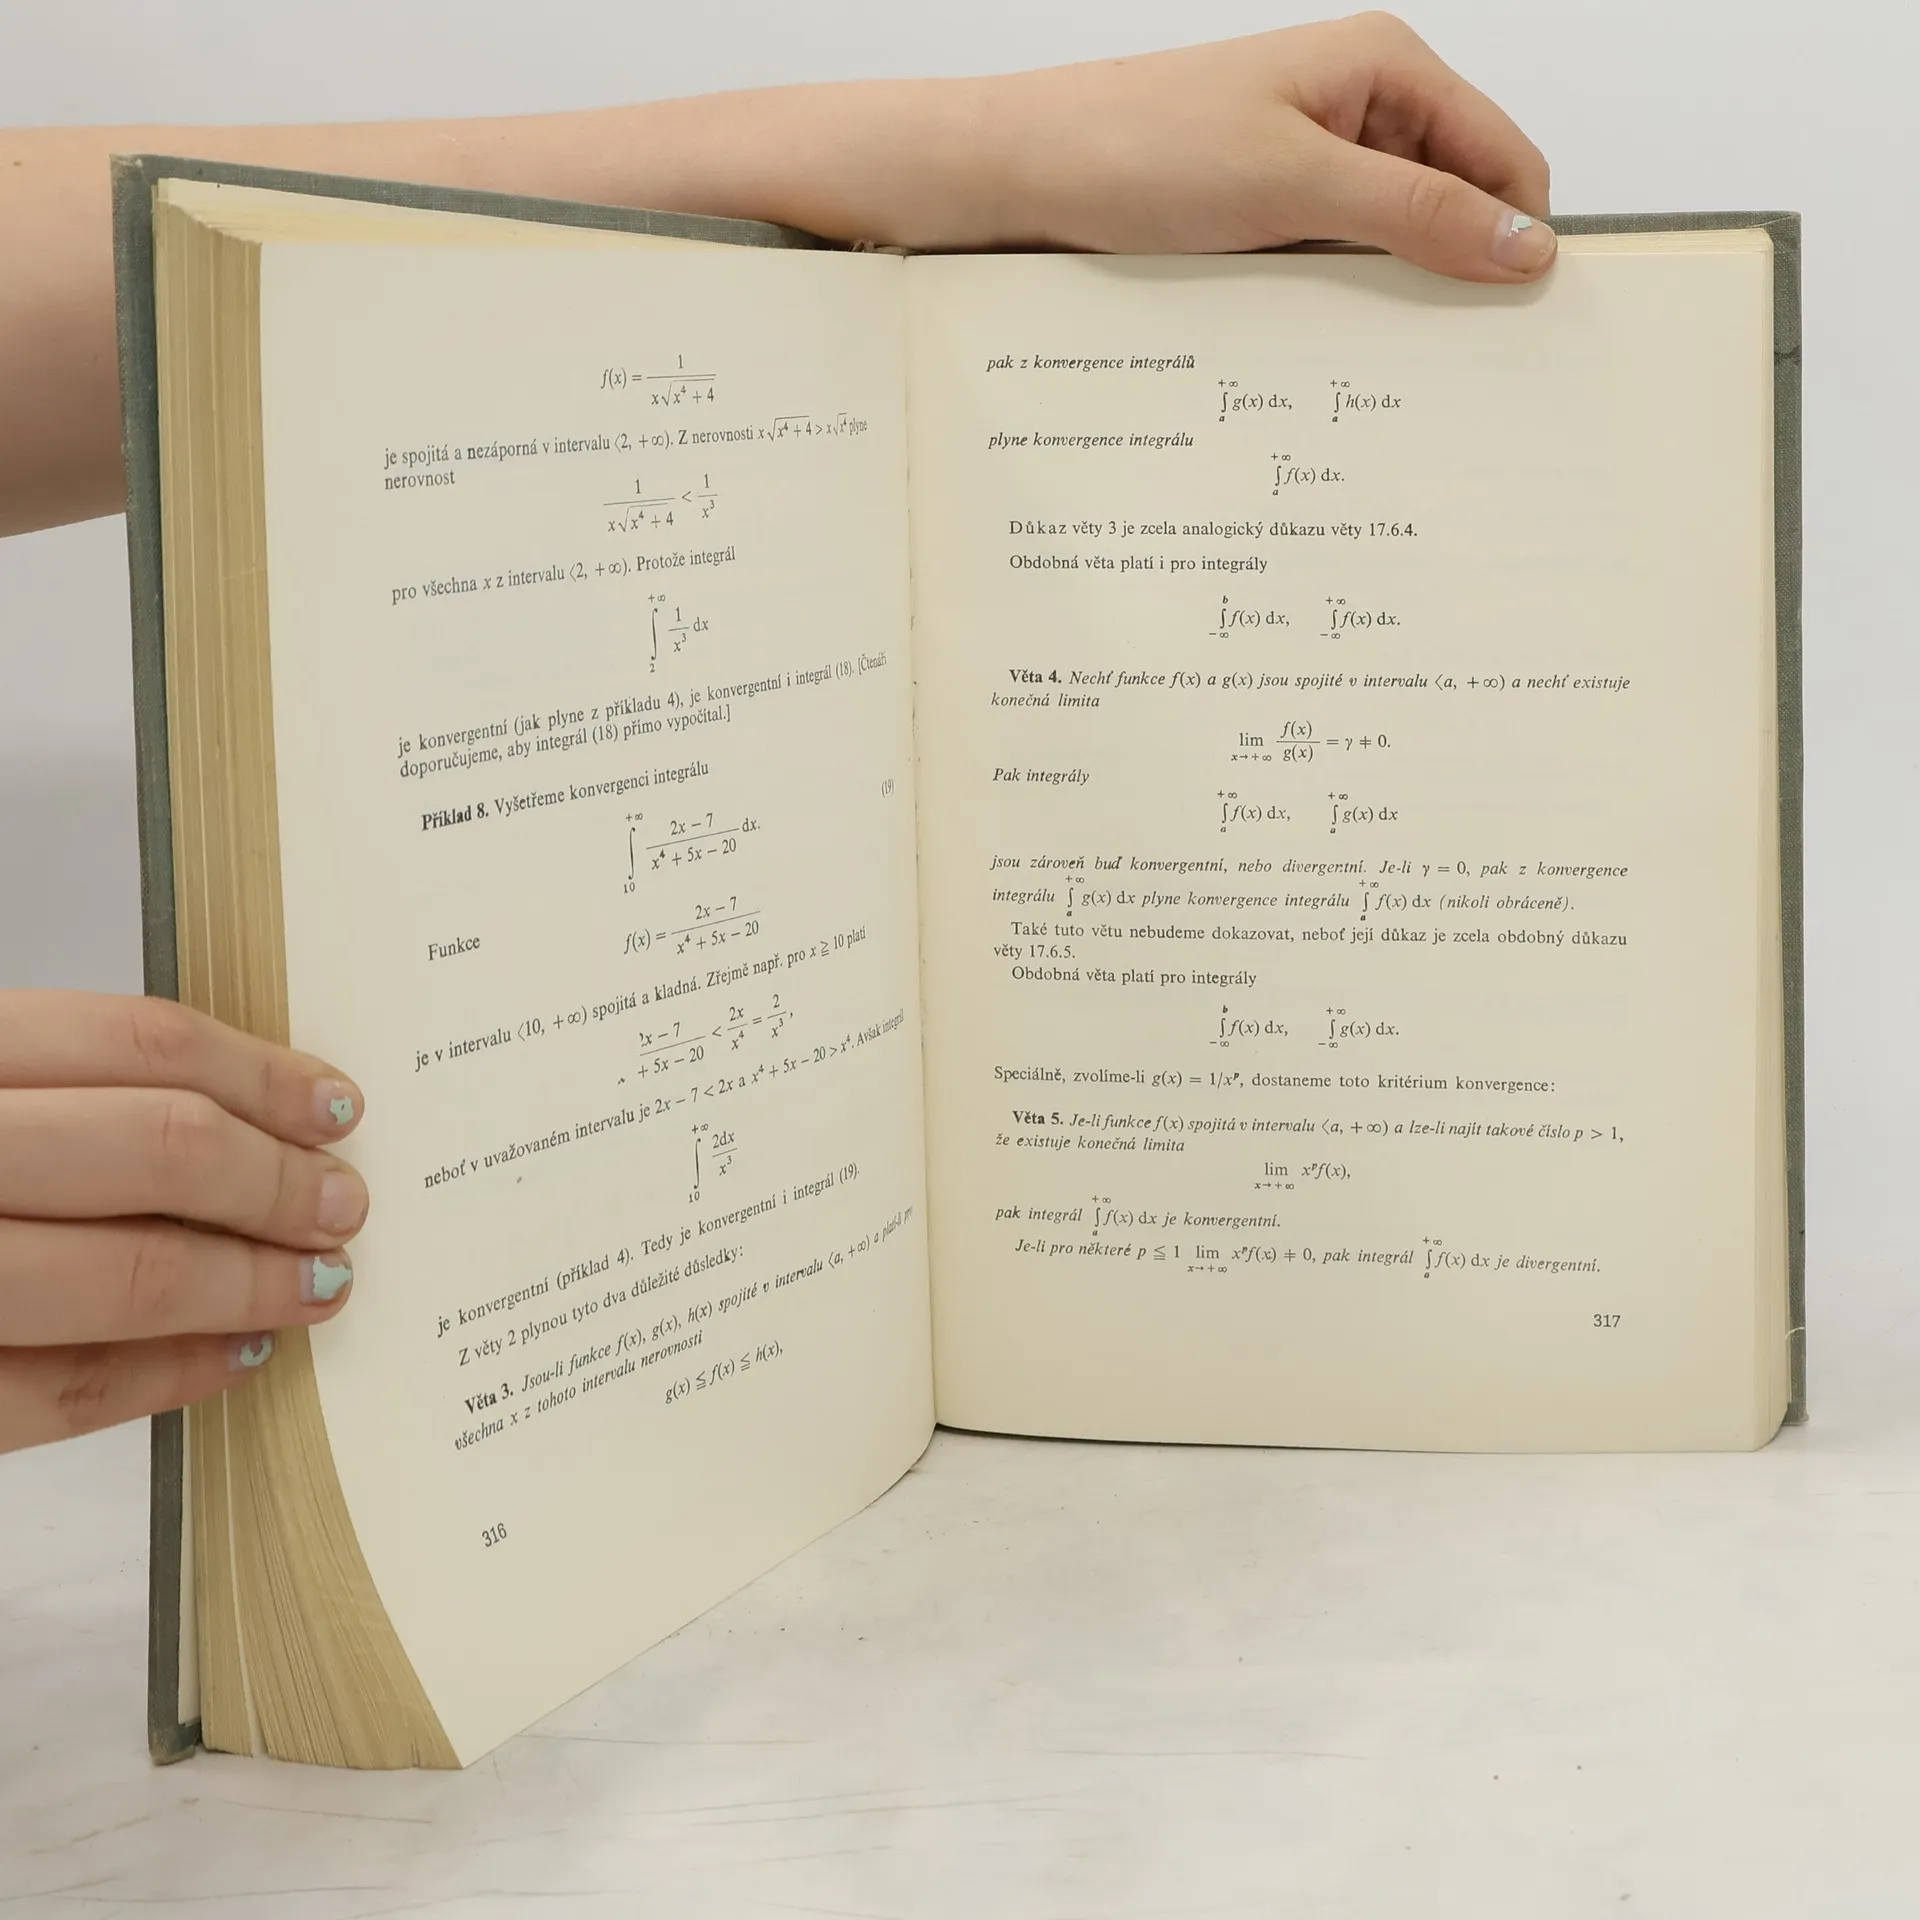 f(x) = 1 / x√(x⁴ + 4)
je spojitá a nezáporná v intervalu ⟨2, +∞). Z nerovnosti x√(x⁴ + 4) > x√x⁴ plyne
nerovnost
1 / x√(x⁴ + 4) < 1 / x³
pro všechna x z intervalu ⟨2, +∞). Protože integrál
∫₂^{+∞} 1/x³ dx
je konvergentní (jak plyne z příkladu 4), je konvergentní i integrál (18). [Čtenáři
doporučujeme, aby integrál (18) přímo vypočítal.]
Příklad 8. Vyšetřeme konvergenci integrálu
∫₁₀^{+∞} (2x − 7) / (x⁴ + 5x − 20) dx. (19)
Funkce f(x) = (2x − 7) / (x⁴ + 5x − 20)
je v intervalu ⟨10, +∞) spojitá a kladná. Zřejmě např. pro x ≧ 10 platí
2x − 7 / + 5x − 20 < 2x / x⁴ = 2 / x³,
neboť v uvažovaném intervalu je 2x − 7 < 2x a x⁴ + 5x − 20 > x⁴. Avšak integrál
∫₁₀^{+∞} 2dx / x³
je konvergentní (příklad 4). Tedy je konvergentní i integrál (19).
Z věty 2 plynou tyto dva důležité důsledky:
Věta 3. Jsou-li funkce f(x), g(x), h(x) spojité v intervalu ⟨a, +∞) a platí-li pro
všechna x z tohoto intervalu nerovnosti
g(x) ≦ f(x) ≦ h(x),
316
pak z konvergence integrálů
∫ₐ^{+∞} g(x) dx, ∫ₐ^{+∞} h(x) dx
plyne konvergence integrálu
∫ₐ^{+∞} f(x) dx.
Důkaz věty 3 je zcela analogický důkazu věty 17.6.4.
Obdobná věta platí i pro integrály
∫_{−∞}^{b} f(x) dx, ∫_{−∞}^{+∞} f(x) dx.
Věta 4. Nechť funkce f(x) a g(x) jsou spojité v intervalu ⟨a, +∞) a nechť existuje
konečná limita
lim_{x→+∞} f(x) / g(x) = γ ≠ 0.
Pak integrály
∫ₐ^{+∞} f(x) dx, ∫ₐ^{+∞} g(x) dx
jsou zároveň buď konvergentní, nebo divergentní. Je-li γ = 0, pak z konvergence
integrálu ∫ₐ^{+∞} g(x) dx plyne konvergence integrálu ∫ₐ^{+∞} f(x) dx (nikoli obráceně).
Také tuto větu nebudeme dokazovat, neboť její důkaz je zcela obdobný důkazu
věty 17.6.5.
Obdobná věta platí pro integrály
∫_{−∞}^{b} f(x) dx, ∫_{−∞}^{+∞} g(x) dx.
Speciálně, zvolíme-li g(x) = 1/xᵖ, dostaneme toto kritérium konvergence:
Věta 5. Je-li funkce f(x) spojitá v intervalu ⟨a, +∞) a lze-li najít takové číslo p > 1,
že existuje konečná limita
lim_{x→+∞} xᵖf(x),
pak integrál ∫ₐ^{+∞} f(x) dx je konvergentní.
Je-li pro některé p ≦ 1 lim_{x→+∞} xᵖf(x) ≠ 0, pak integrál ∫ₐ^{+∞} f(x) dx je divergentní.
317